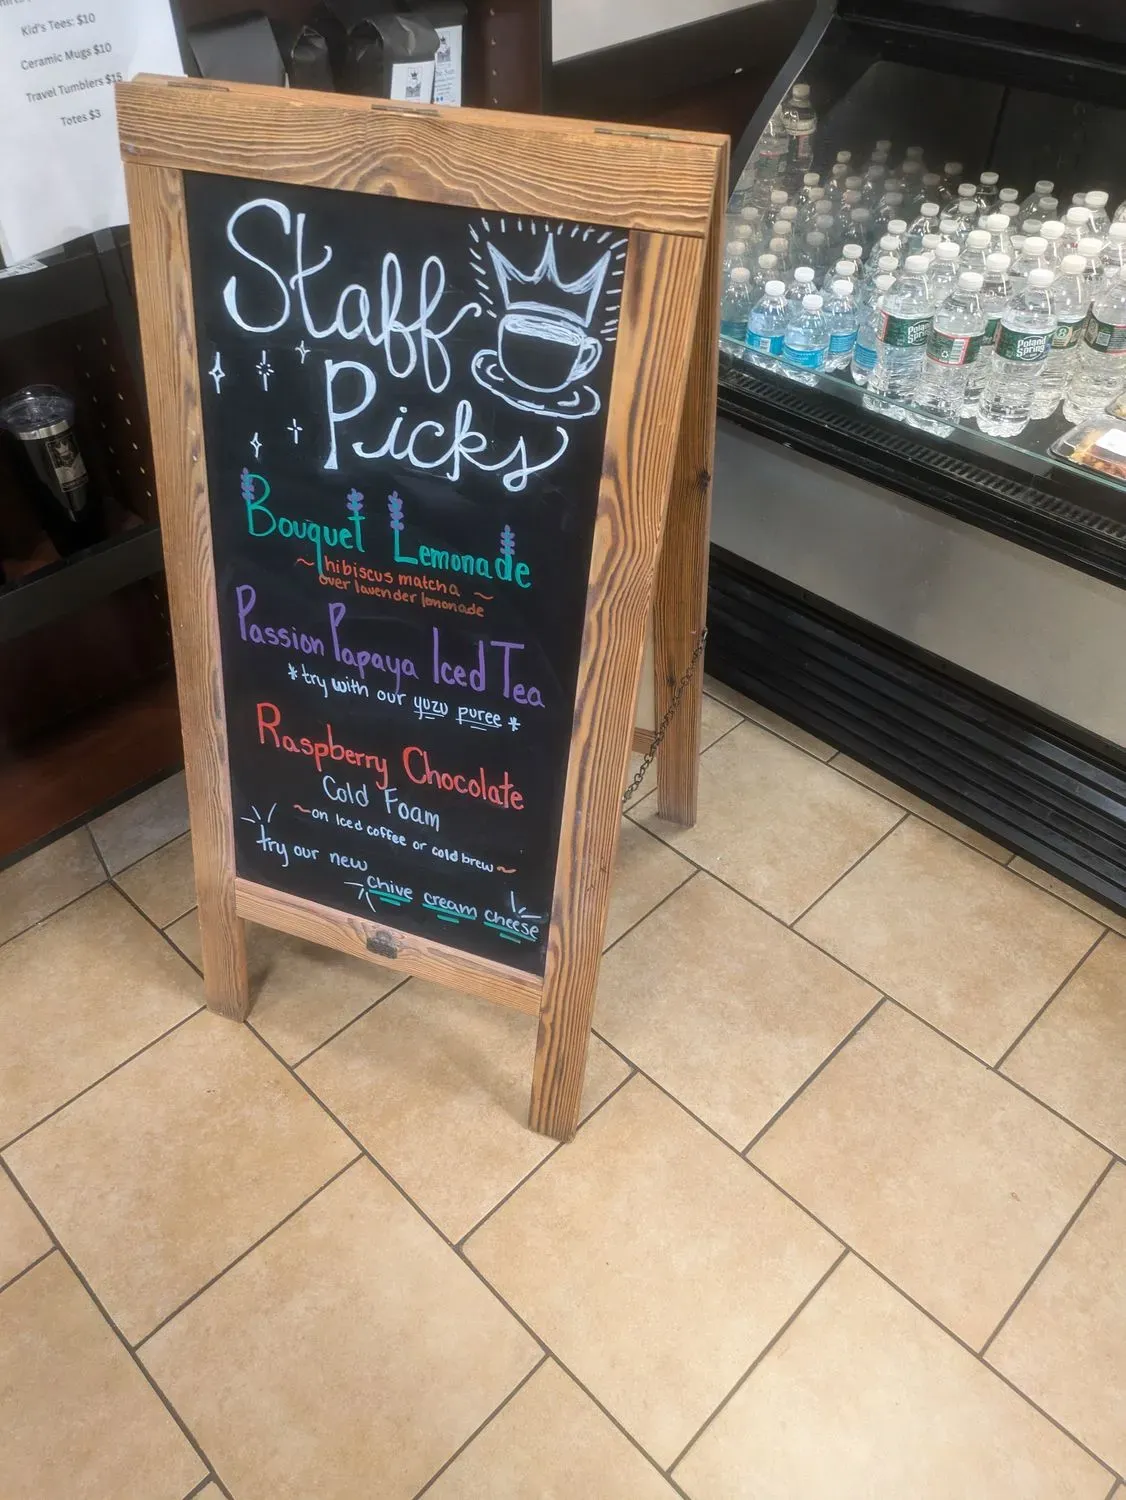 Kid's Tees: $10
Ceramic Mugs $10
Travel Tumblers $15
Totes $3
Staff
Picks
Bouquet Lemonade
~ hibiscus matcha ~
over lavender lemonade
Passion Papaya Iced Tea
*try with our yuzu puree *
Raspberry Chocolate
Cold Foam
~on Iced coffee or cold brew~
try our new
chive cream cheese
Poland Spring
Poland Spring